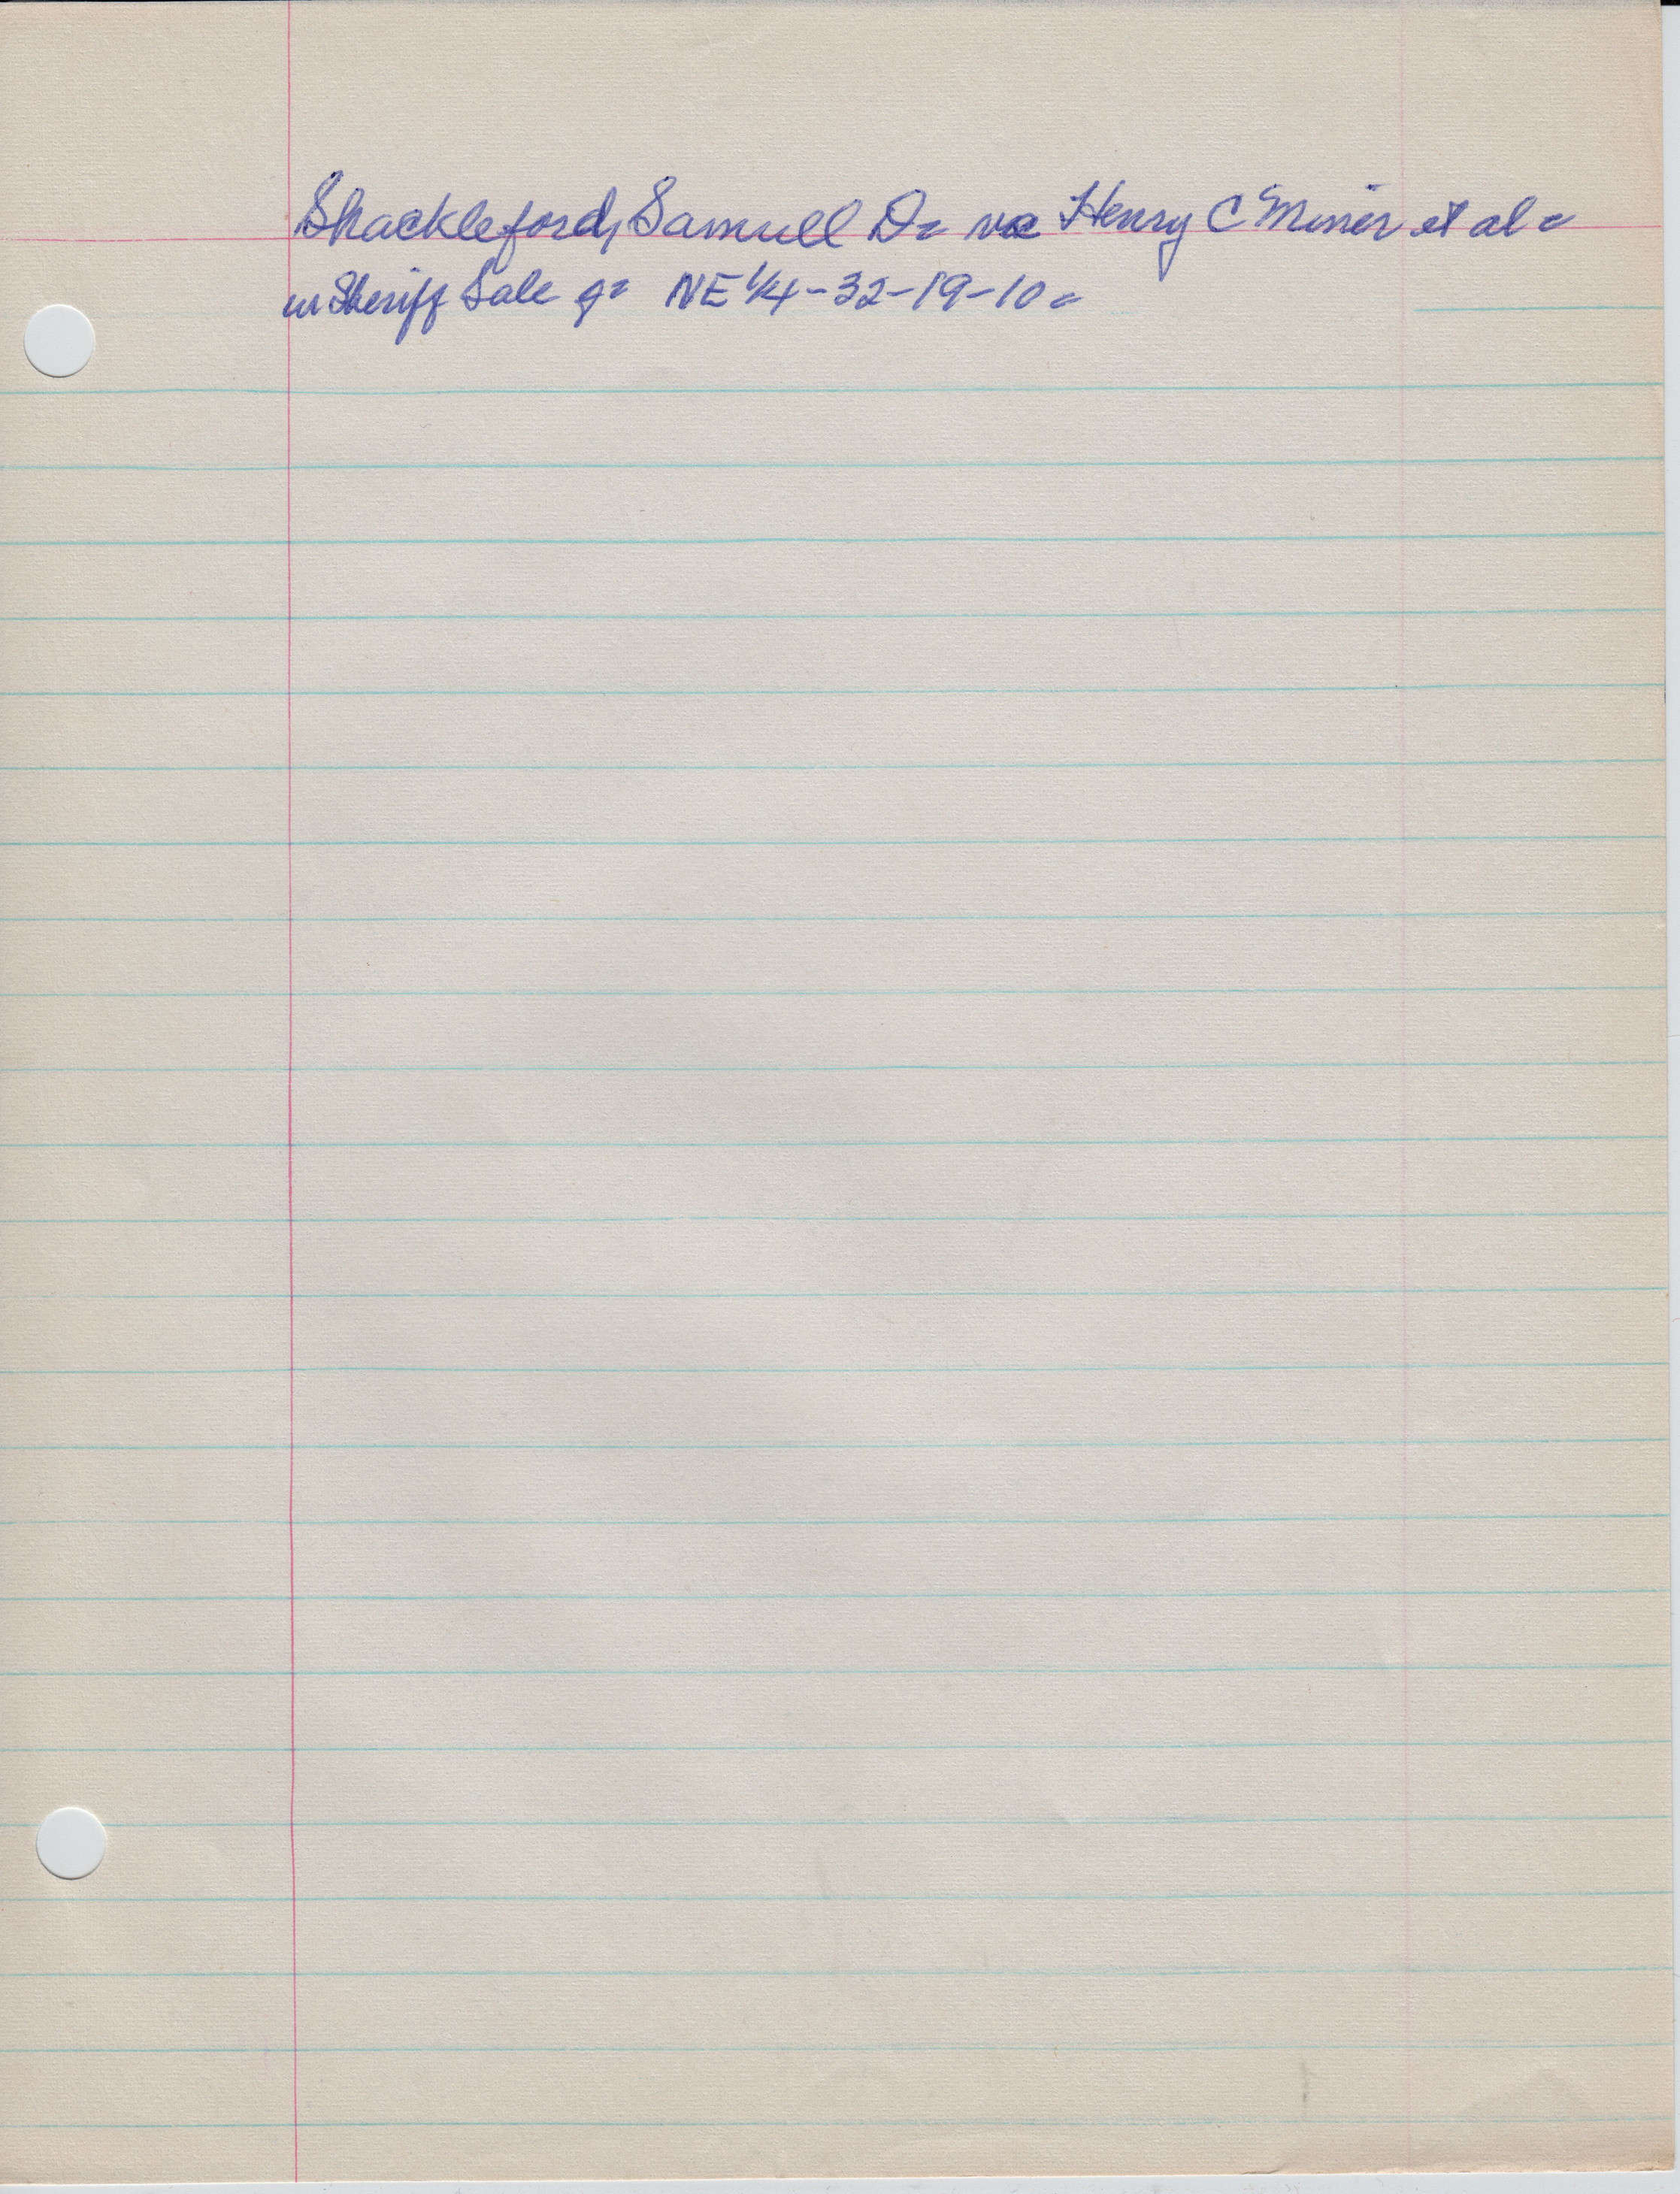 Shackleford, Samuell D= vs Henry C Minier et al =
in Sheriff Sale of= NE 1/4-32-19-10=